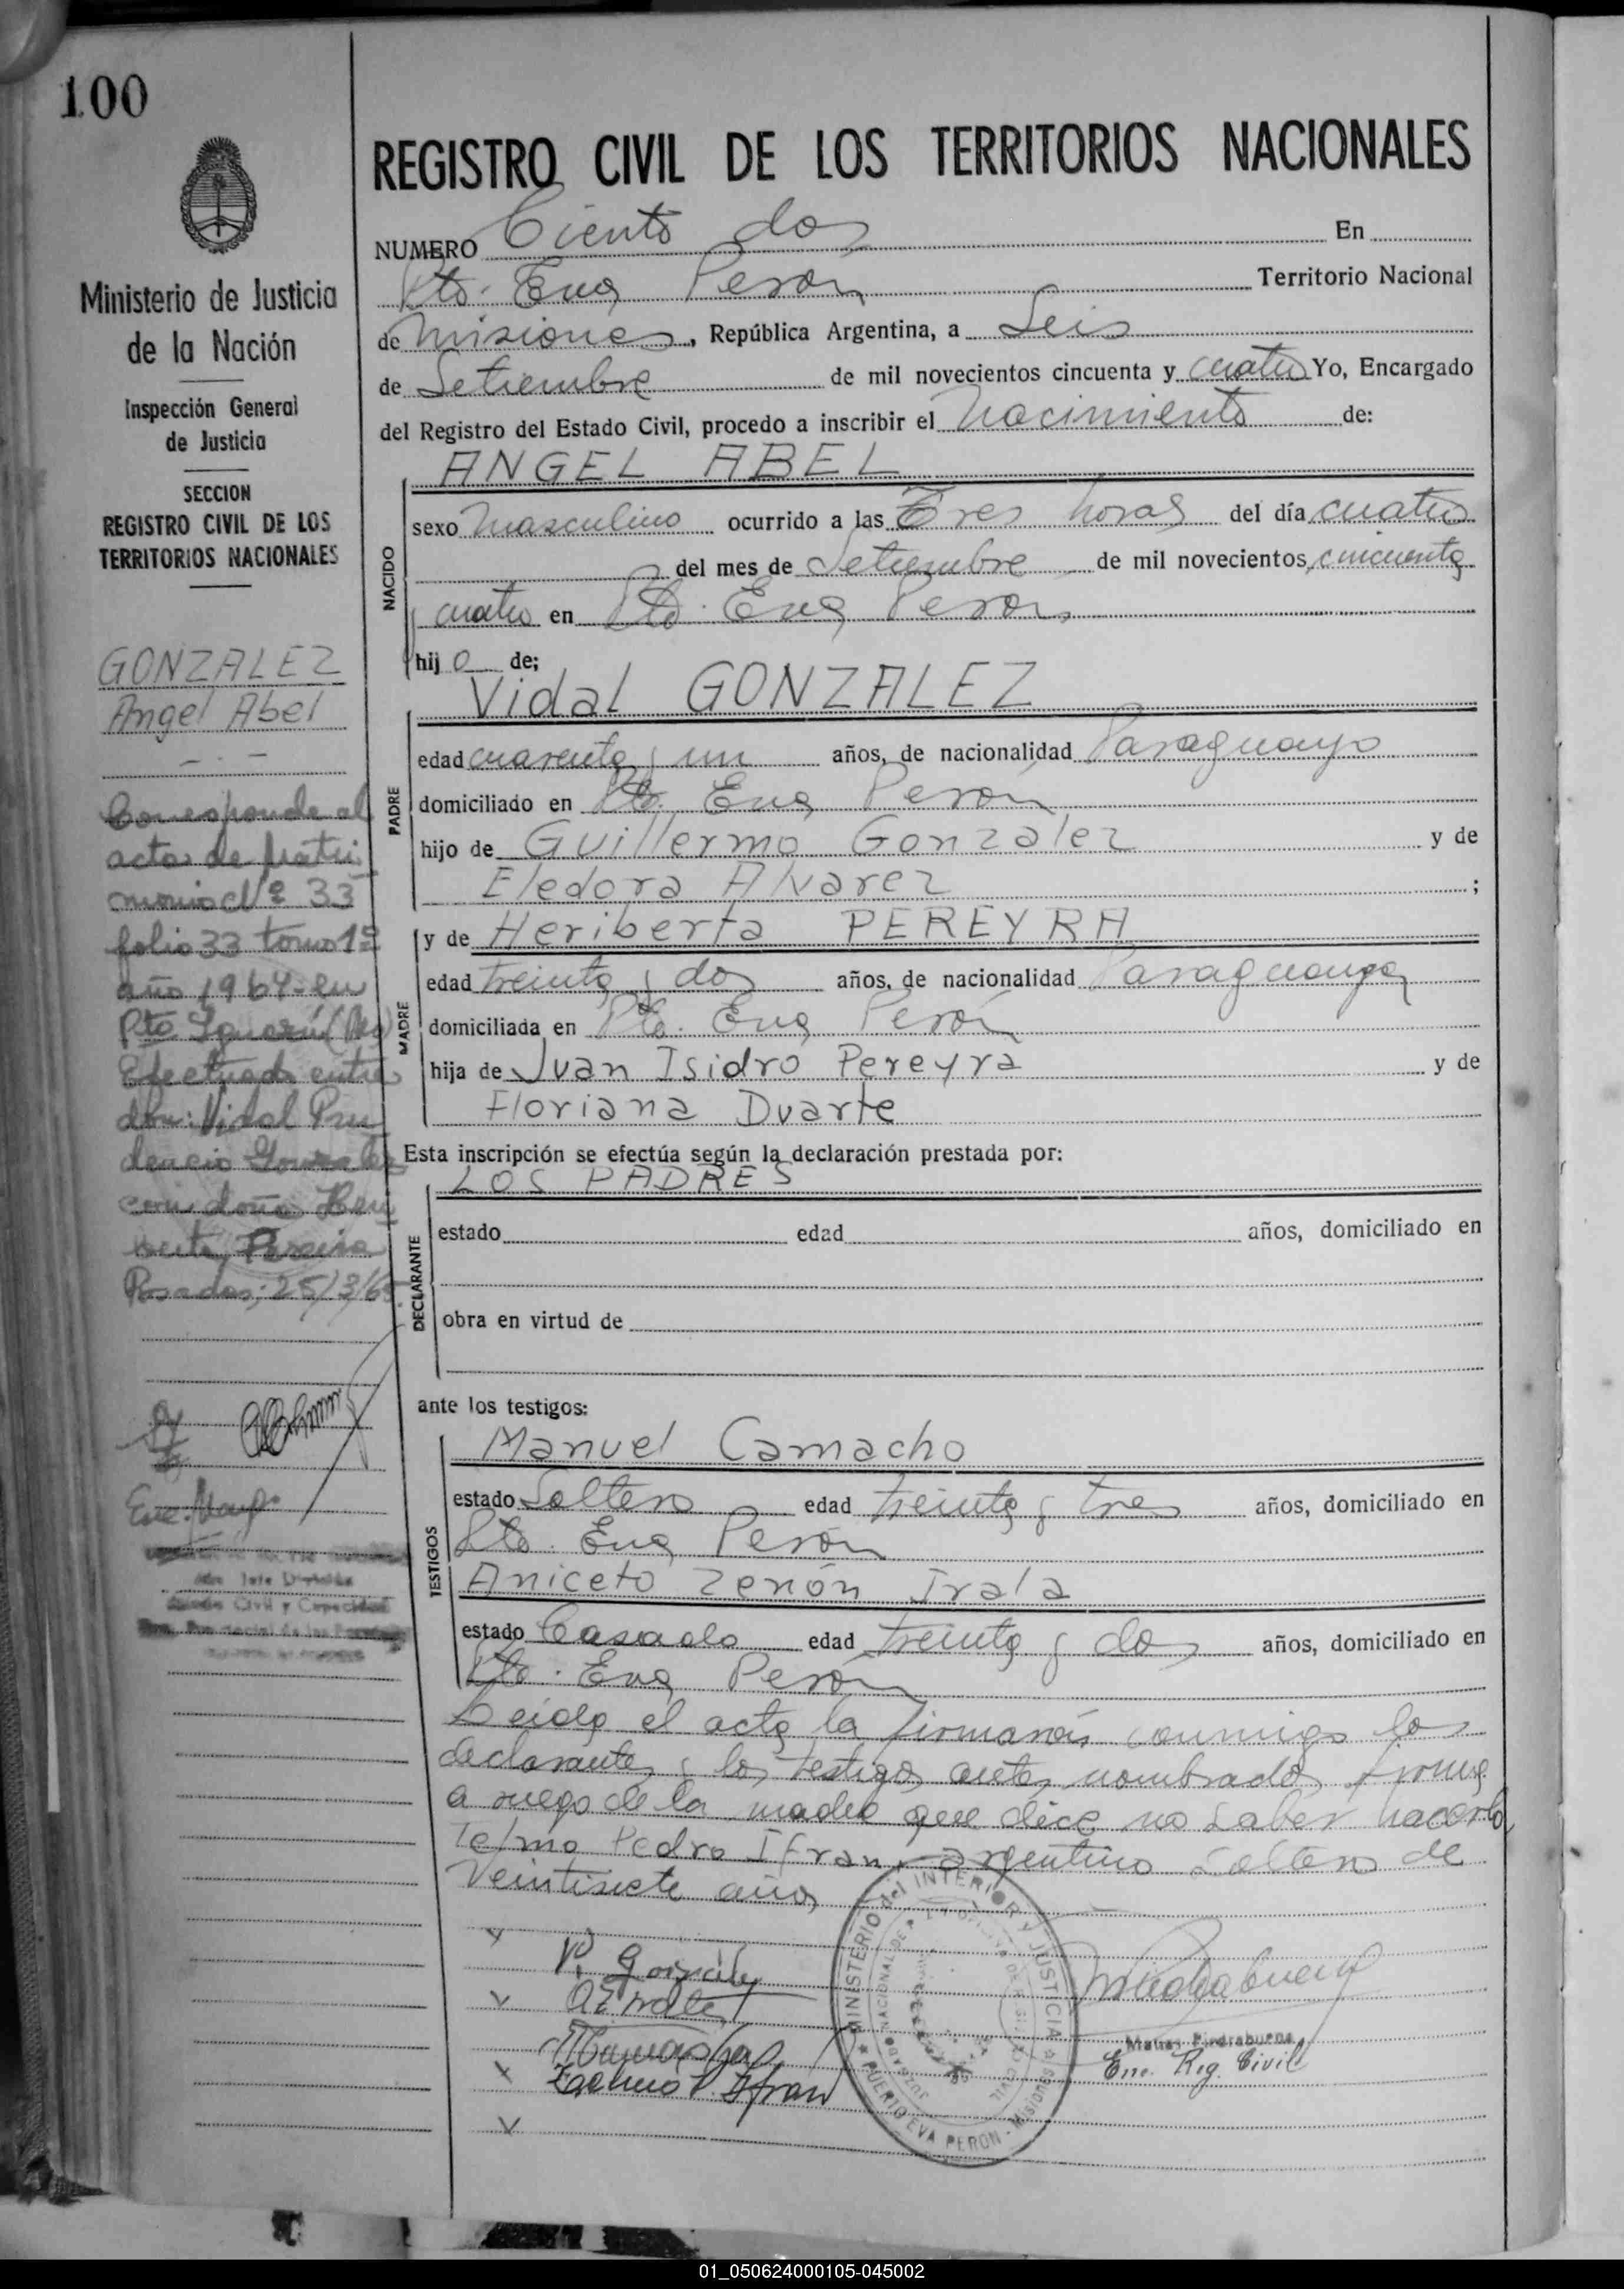 100
Ministerio de Justicia
de la Nación
Inspección General
de Justicia
SECCION
REGISTRO CIVIL DE LOS
TERRITORIOS NACIONALES
GONZALEZ
Angel Abel
Corresponde al
acta de matri
monio Nº 33
folio 33 tomo 1º
año 1964 en
Pto Iguazú
Efectuado entre
don: Vidal Pru
dencio Gonzalez
con doña Heri
berta Pereira
Posadas; 25/3/65
REGISTRO CIVIL DE LOS TERRITORIOS NACIONALES
NUMERO Ciento dos En
Pto. Eva Perón Territorio Nacional
de Misiones, República Argentina, a Seis
de Setiembre de mil novecientos cincuenta y cuatro Yo, Encargado
del Registro del Estado Civil, procedo a inscribir el Nacimiento de:
ANGEL ABEL
NACIDO
sexo Masculino ocurrido a las Tres horas del día cuatro
del mes de Setiembre de mil novecientos cincuenta
y cuatro en Pto. Eva Perón
hij o de;
Vidal GONZALEZ
PADRE
edad cuarenta y un años, de nacionalidad Paraguayo
domiciliado en Pto. Eva Perón
hijo de Guillermo González y de
Eledora Alvarez ;
y de Heriberta PEREYRA
MADRE
edad treinta y dos años, de nacionalidad Paraguaya
domiciliada en Pto. Eva Perón
hija de Juan Isidro Pereyra y de
Floriana Duarte
Esta inscripción se efectúa según la declaración prestada por:
LOS PADRES
DECLARANTE
estado edad años, domiciliado en
obra en virtud de
ante los testigos:
Manuel Camacho
TESTIGOS
estado Soltero edad treinta y tres años, domiciliado en
Pto. Eva Perón
Aniceto Zenón Irala
estado Casado edad treinta y dos años, domiciliado en
Pto. Eva Perón
Leída el acta la firmarán conmigo los
declarantes y los testigos antes nombrados, firma
a ruego de la madre que dice no saber hacerlo,
Telmo Pedro Ifran, argentino soltero de
Veintisiete años
V. González
Telmo P. Ifran
MINISTERIO del INTERIOR Y JUSTICIA
PUERTO EVA PERON - Misiones
Matías Piedrabuena
Enc. Reg. Civil
01_050624000105-045002